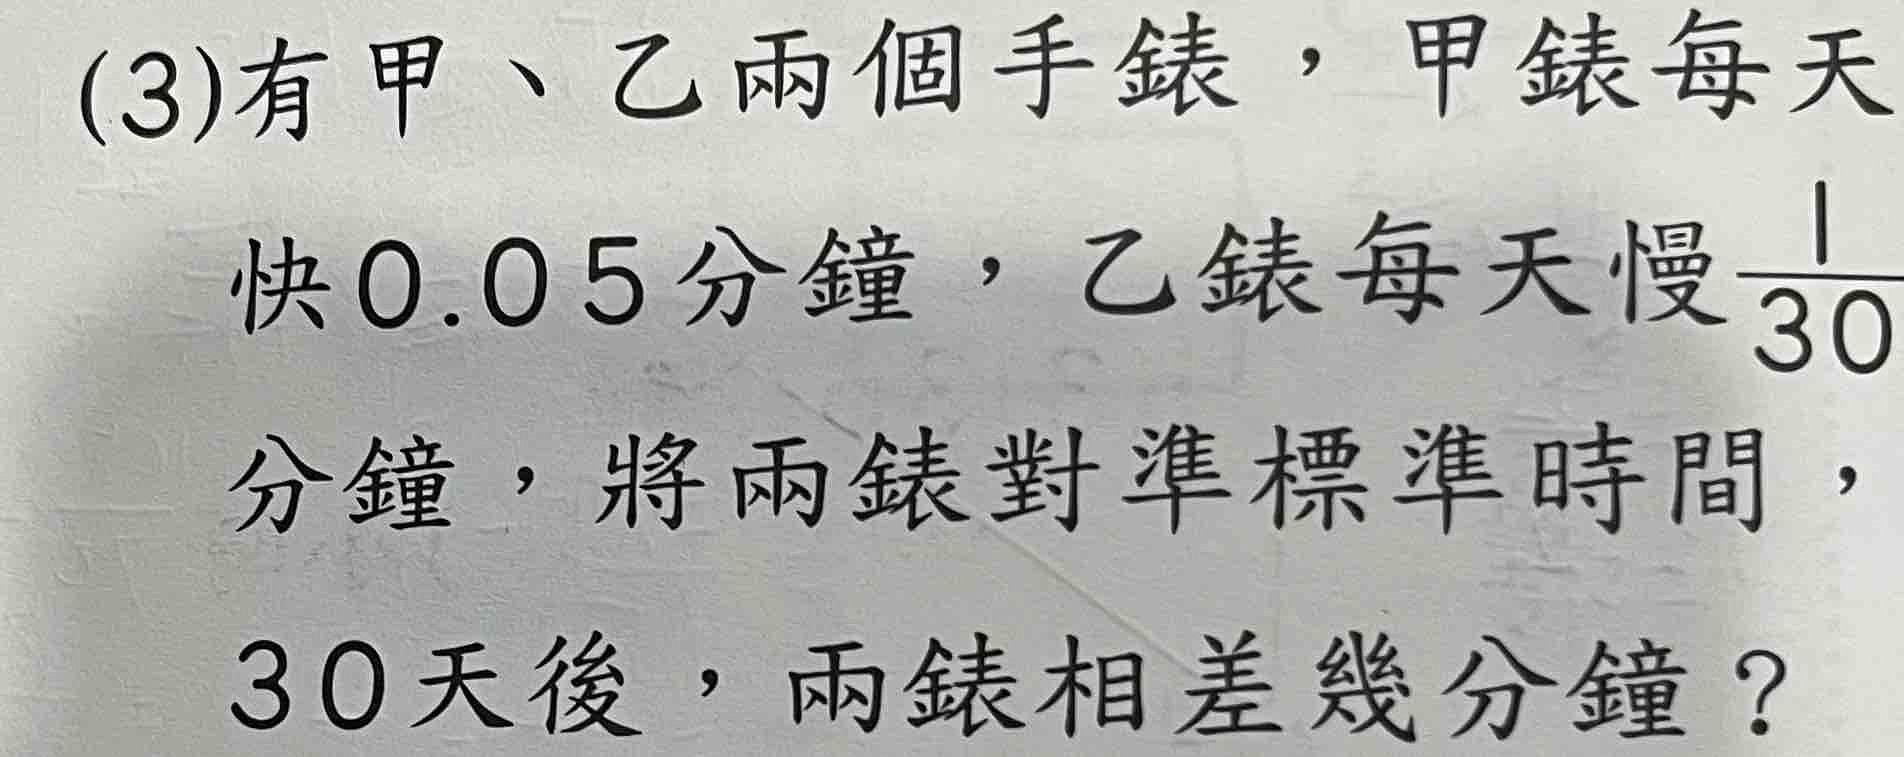 (3)有甲、乙兩個手錶，甲錶每天
快0.05分鐘，乙錶每天慢1/30
分鐘，將兩錶對準標準時間，
30天後，兩錶相差幾分鐘？